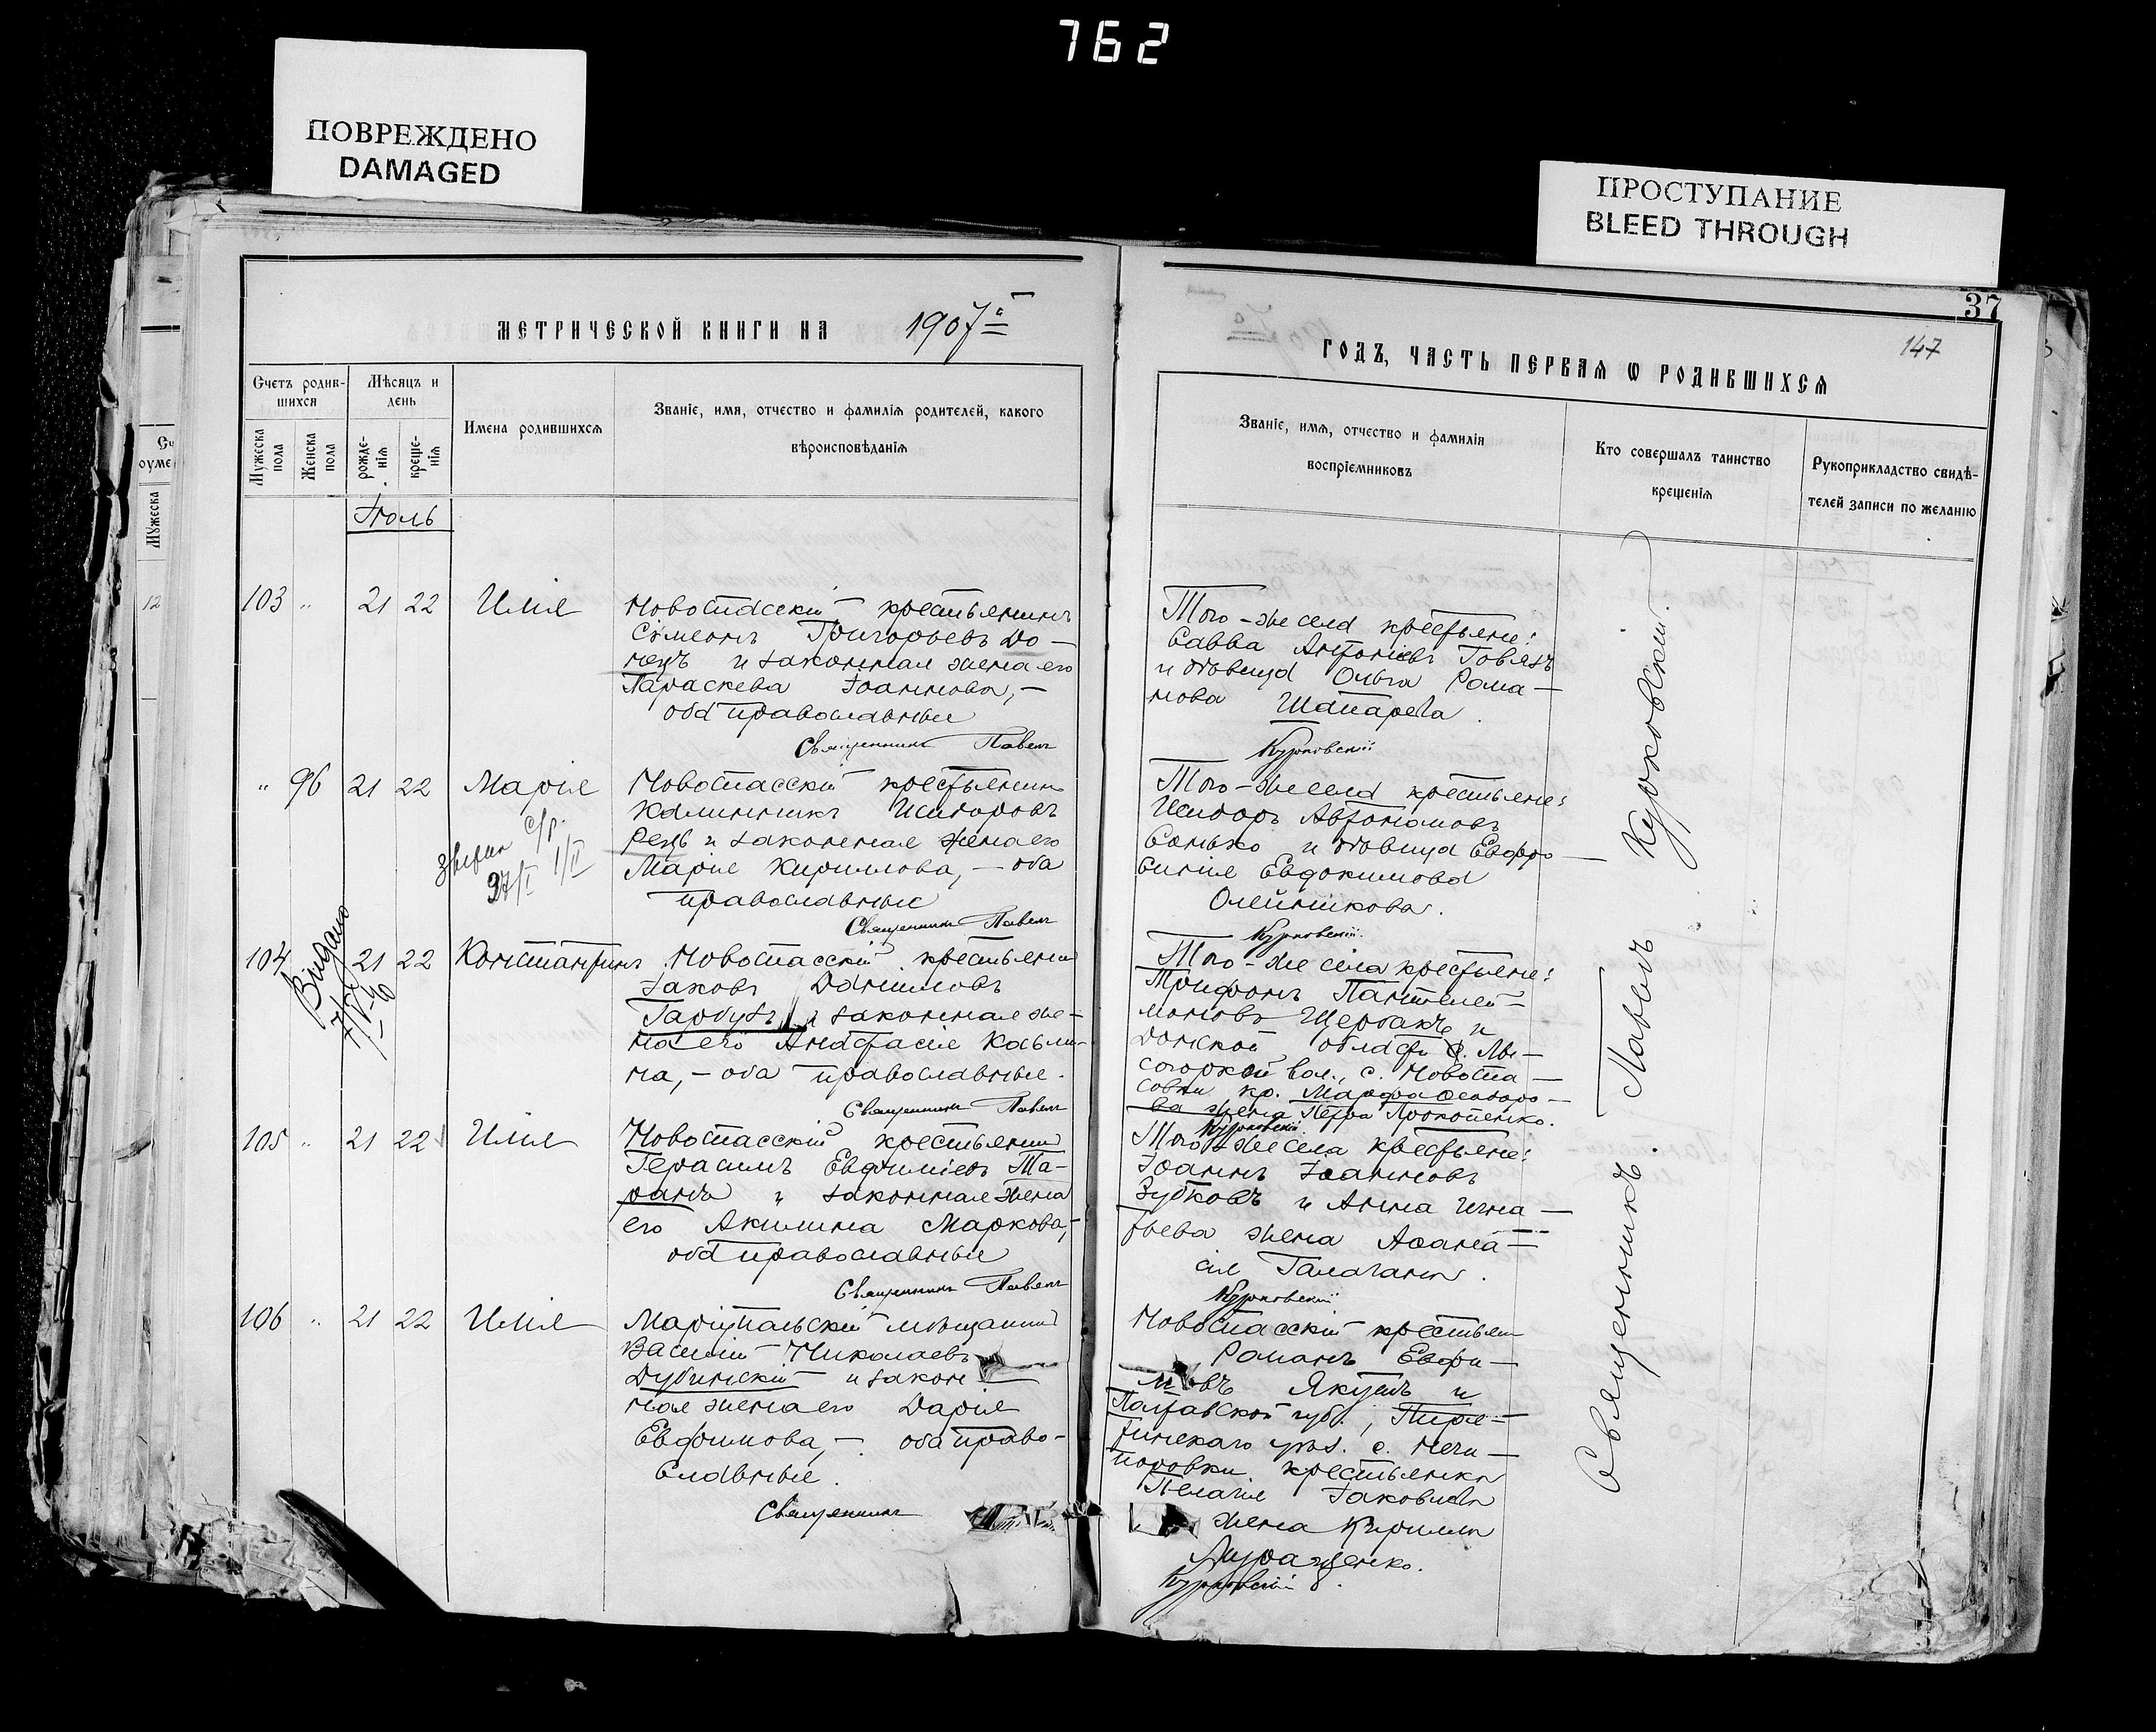 762
ПОВРЕЖДЕНО
DAMAGED
ПРОСТУПАНИЕ
BLEED THROUGH
37
147
МЕТРИЧЕСКОЙ КНИГИ НА 1907
ГОДЪ, ЧАСТЬ ПЕРВАЯ Ѡ РОДИВШИХСЯ
Счетъ родив-
шихся
Мѣсяцъ и
день
Имена родившихся
Званіе, имя, отчество и фамилія родителей, какого
вѣроисповѣданія
Мужеска
пола
Женска
пола
рожде-
нія
креще-
нія
Званіе, имя, отчество и фамилія
воспріемниковъ
Кто совершалъ таинство
крещенія
Рукоприкладство свидѣ-
телей записи по желанію
Іюль
103 " 21 22 Илія
Новоспасскій крестьянинъ
Сѵмеонъ Григорьевъ До-
нецъ и законная жена его
Параскева Іоаннова, —
оба православные
Священникъ Павелъ
Того-же села крестьяне:
Савва Антоніевъ Говязъ
и дѣвица Ольга Рома-
нова Шапарева.
Курковскій
" 96 21 22 Марія
Новоспасскій крестьянинъ
Каллиникъ Исидоровъ
Рецъ и законная жена его
Марія Кириллова, — оба
православные
Священникъ Павелъ
Того-же села крестьяне:
Исидоръ Автономовъ
Сонько и дѣвица Евфро-
синія Евдокимова
Олейникова.
Курковскій
с/р.
27/I 1/II
Видано
104 21 22 Константинъ
Новоспасскій крестьянинъ
Іаковъ Даниловъ
Гарбузъ и законная же-
на его Анастасія Косьми-
на, — оба православные.
Священникъ Павелъ
Того-же села крестьяне:
Трифонъ Пантелей-
моновъ Щербакъ и
Донской области
вол., с. Новоспа-
совки кр. Марфа Ѳеодоро-
ва жена Петра Прокопенко.
Курковскій
105 " 21 22 Илія
Новоспасскій крестьянинъ
Герасимъ Евфиміевъ Та-
ранъ и законная жена
его Акилина Маркова, —
оба православные
Священникъ Павелъ
Того-же села крестьяне:
Іоаннъ Іоанновъ
Зубковъ и Анна Игна-
тьева жена Аѳана-
сія Галагана.
Курковскій
106 " 21 22 Илія
Маріупольскій мѣщанинъ
Василій Николаевъ
Дубинскій и закон
ная жена его Дарія
Евфимова, — оба право-
славные.
Священникъ
Новоспасскій крестьянинъ
Романъ Евфи-
мовъ Якушъ и
Полтавской губ., Пиря-
тинскаго уѣз. с. Нечи-
поровки крестьянка
Пелагія Іаковлева
жена Кирилла
Курковскій
Священникъ Павелъ Курковскій